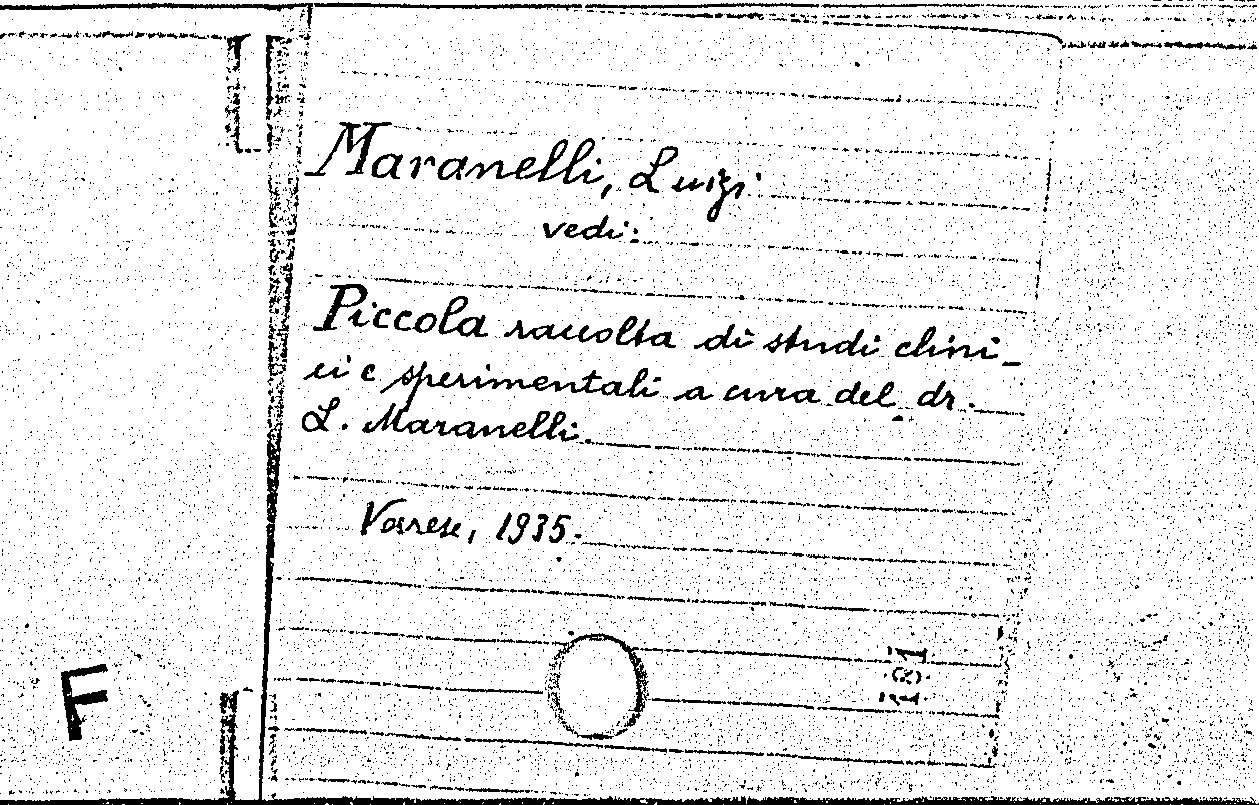 Maranelli, Luigi
vedi:
Piccola raccolta di studi clini-
ci e sperimentali a cura del dr.
L. Maranelli.
Varese, 1935.
181
F